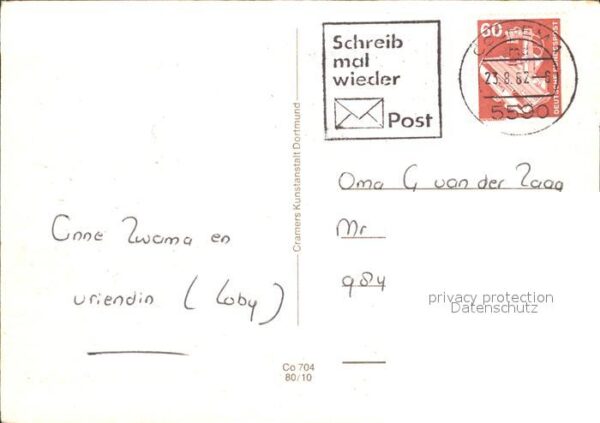 Schreib
mal
wieder
Post
60
DEUTSCHE BUNDESPOST
23.8.82-
5590
Cramers Kunstanstalt Dortmund
Oma G van der Zaag
Mr
984
Anne Zwama en
vriendin (Loby)
privacy protection
Datenschutz
Co 704
80/10